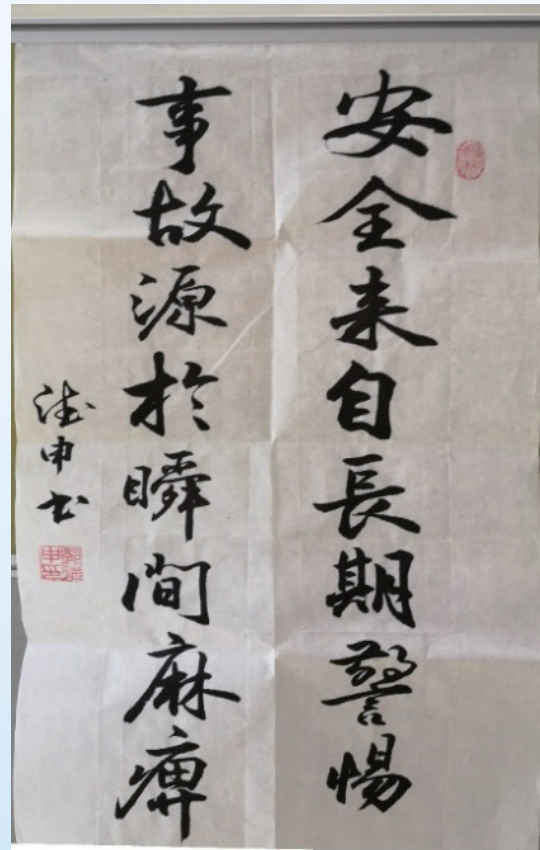 安全来自長期警惕
事故源於瞬間麻痹
申书